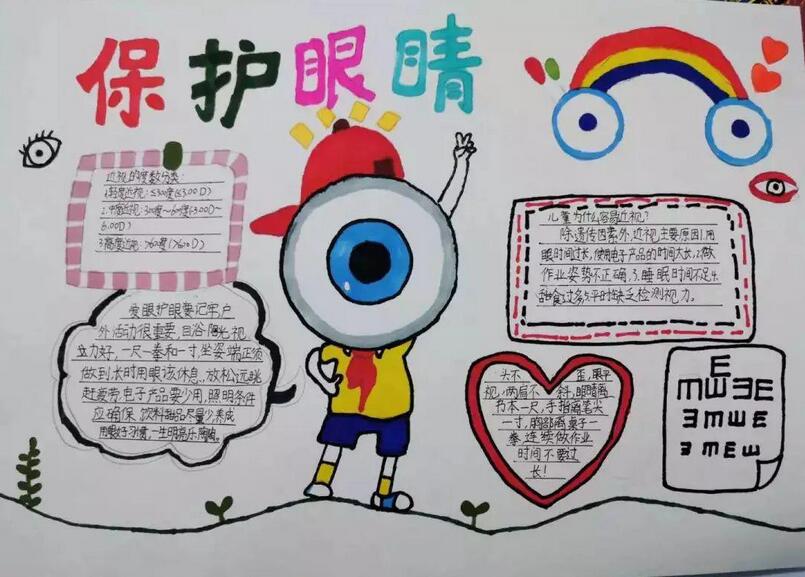 保护眼睛
近视的度数分类:
1.轻度近视:≤300度(≤3.00D)
2.中度近视:300度~600度(3.00D~
6.00D)
3.高度近视:>600度(>6.00D)
爱眼护眼要记牢户
外活动很重要,目浴阳光视
力好,一尺一拳和一寸,坐姿端正须
做到长时用眼该休息,放松远眺
赶疲劳,电子产品要少用,照明条件
应确保、饮料甜品尽量少,养成
用眼好习惯,一生明亮乐陶陶。
儿童为什么容易近视?
除遗传因素外,近视主要原因1.用
眼时间过长,使用电子产品的时间太长,2.做
作业姿势不正确,3.睡眠时间不足4.
甜食过多5.平时缺乏检测视力。
头不歪,眼平
视,两肩不斜,眼睛离
书本一尺,手指离笔尖
一寸,胸部离桌子一
拳,连续做作业
时间不要过
长!
E
MWEE
EMWE
EMEW